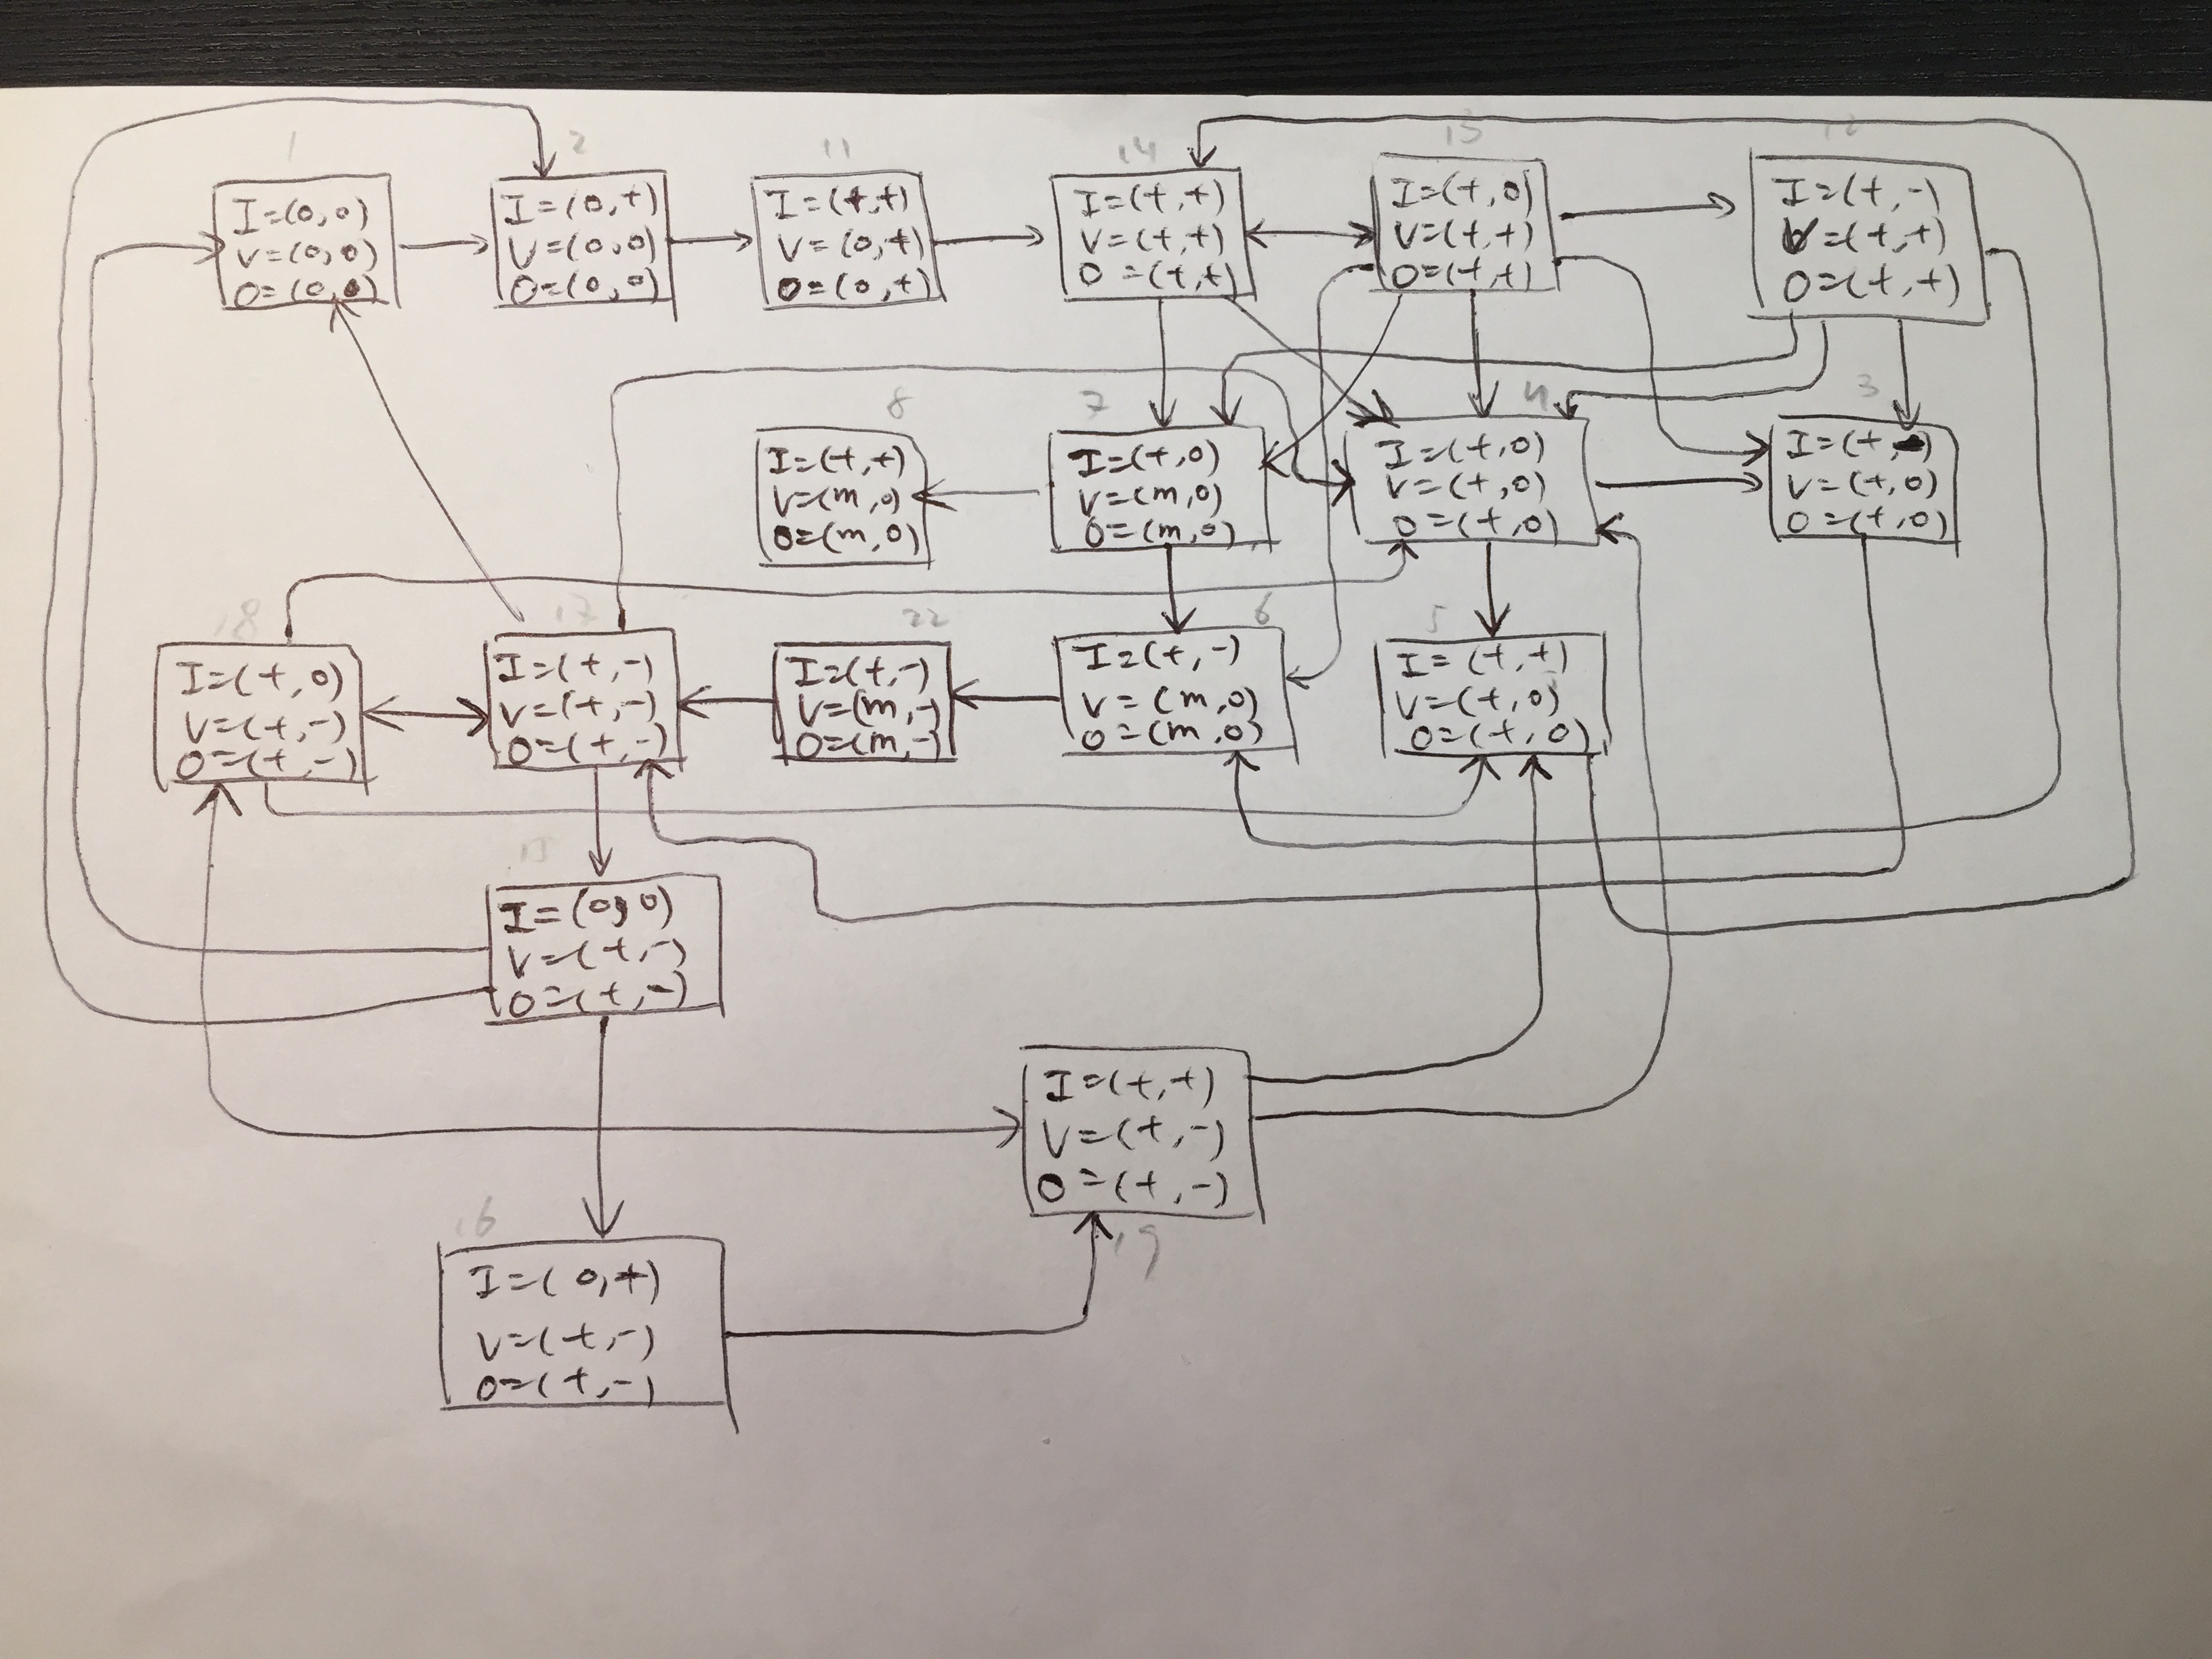 1
I=(0,0)
V=(0,0)
O=(0,0)
2
I=(0,+)
V=(0,0)
O=(0,0)
11
I=(+,+)
V=(0,+)
O=(0,+)
14
I=(+,+)
V=(+,+)
O=(+,+)
13
I=(+,0)
V=(+,+)
O=(+,+)
12
I=(+,-)
V=(+,+)
O=(+,+)
8
I=(+,+)
V=(m,0)
O=(m,0)
7
I=(+,0)
V=(m,0)
O=(m,0)
4
I=(+,0)
V=(+,0)
O=(+,0)
3
I=(+,
V=(+,0)
O=(+,0)
18
I=(+,0)
V=(+,-)
O=(+,-)
17
I=(+,-)
V=(+,-)
O=(+,-)
22
I=(+,-)
V=(m,-)
O=(m,-)
6
I=(+,-)
V=(m,0)
O=(m,0)
5
I=(+,+)
V=(+,0)
O=(+,0)
15
I=(0,0)
V=(+,-)
O=(+,-)
I=(+,+)
V=(+,-)
O=(+,-)
19
16
I=(0,+)
V=(+,-)
O=(+,-)